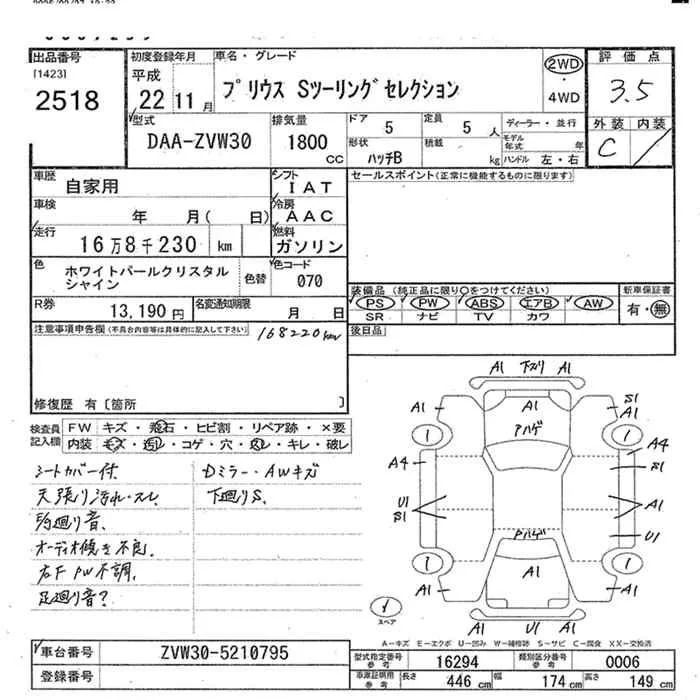 出品番号
[1423]
2518
初度登録年月
平成
22 11月
車名・グレード
プリウス Sツーリングセレクション
2WD
・
4WD
評価点
3.5
外装 内装
C
型式
DAA-ZVW30
排気量
1800
CC
ドア
5
定員
5 人
形状
ハッチB
積載
kg
ディーラー・並行
モデル年式 年
ハンドル 左・右
車歴
自家用
シフト
IAT
車検
年 月( 日)
冷房
AAC
走行
16万8千230 km
燃料
ガソリン
色
ホワイトパールクリスタル
シャイン
色替
色コード
070
R券
13,190円
名変通知期限
月 日
セールスポイント(正常に機能するものに限ります)
装備品 (純正品に限り○をつけてください)
PS PW ABS エアB AW
SR ナビ TV カワ
新車保証書
有・無
後日品
注意事項申告欄(不具合内容等は具体的に記入して下さい)
168220km
修復歴 有〔箇所 〕
検査員
記入欄
FW キズ・飛石・ヒビ割・リペア跡・×要
内装 モズ・汚レ・コゲ・穴・スレ・キレ・破レ
シートカバー付
天張り汚れ・スレ
オーディオ
右F PW不調.
足廻り音?
Dミラー・AWキズ
下廻りS.
A1 下ズリ A1
A1 A1 S1
A1
アハゲ
1 1
A4 A4
S1
U1
S1
A1
U1
アハゲ
1 A1 1
A1 A1
A1 U1 A1
スペア
A-キズ E-エクボ U-凹み W-補修跡 S-サビ C-腐食 XX-交換済
車台番号
ZVW30-5210795
登録番号
型式指定番号
参考
16294
類別区分番号
参考
0006
車庫証明用
参考
長さ 446 cm 幅 174 cm 高さ 149 cm